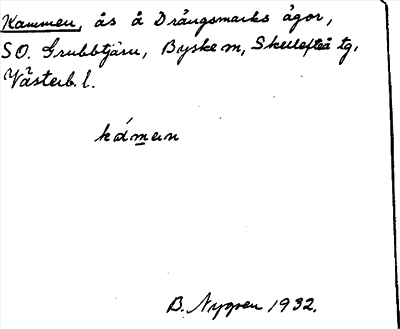 Kammen, ås å Drängsmarks ägor,
SO. Grubbtjärn, Byske sn, Skellefteå tg,
Västerb. l.
kámen
B. Nygren 1932.